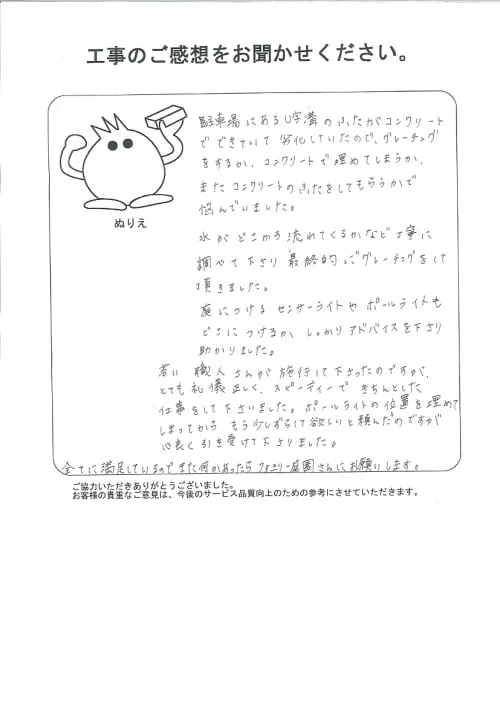 工事のご感想をお聞かせください。
ぬりえ
駐車場にあるU字溝のふたがコンクリート
でできていて劣化していたので、グレーチング
をするか、コンクリートで埋めてしまうか、
またコンクリートのふたをしてもらうかで
悩んでいました。
水がどこから流れてくるかなど丁寧に
調べて下さり最終的にグレーチングをして
頂きました。
庭につけるセンサーライトやポールライトも
どこにつけるか、しっかりアドバイスを下さり
助かりました。
若い職人さんが施行して下さったのですが、
とても礼儀正しく、スピーディーできちんとした
仕事をして下さいました。ポールライトの位置を埋めて
しまってからもう少しずらして欲しいと頼んだのですが
心良く引き受けて下さりました。
全てに満足しているのでまた何かあったらファミリー庭園さんにお願いします。
ご協力いただきありがとうございました。
お客様の貴重なご意見は、今後のサービス品質向上のための参考にさせていただきます。